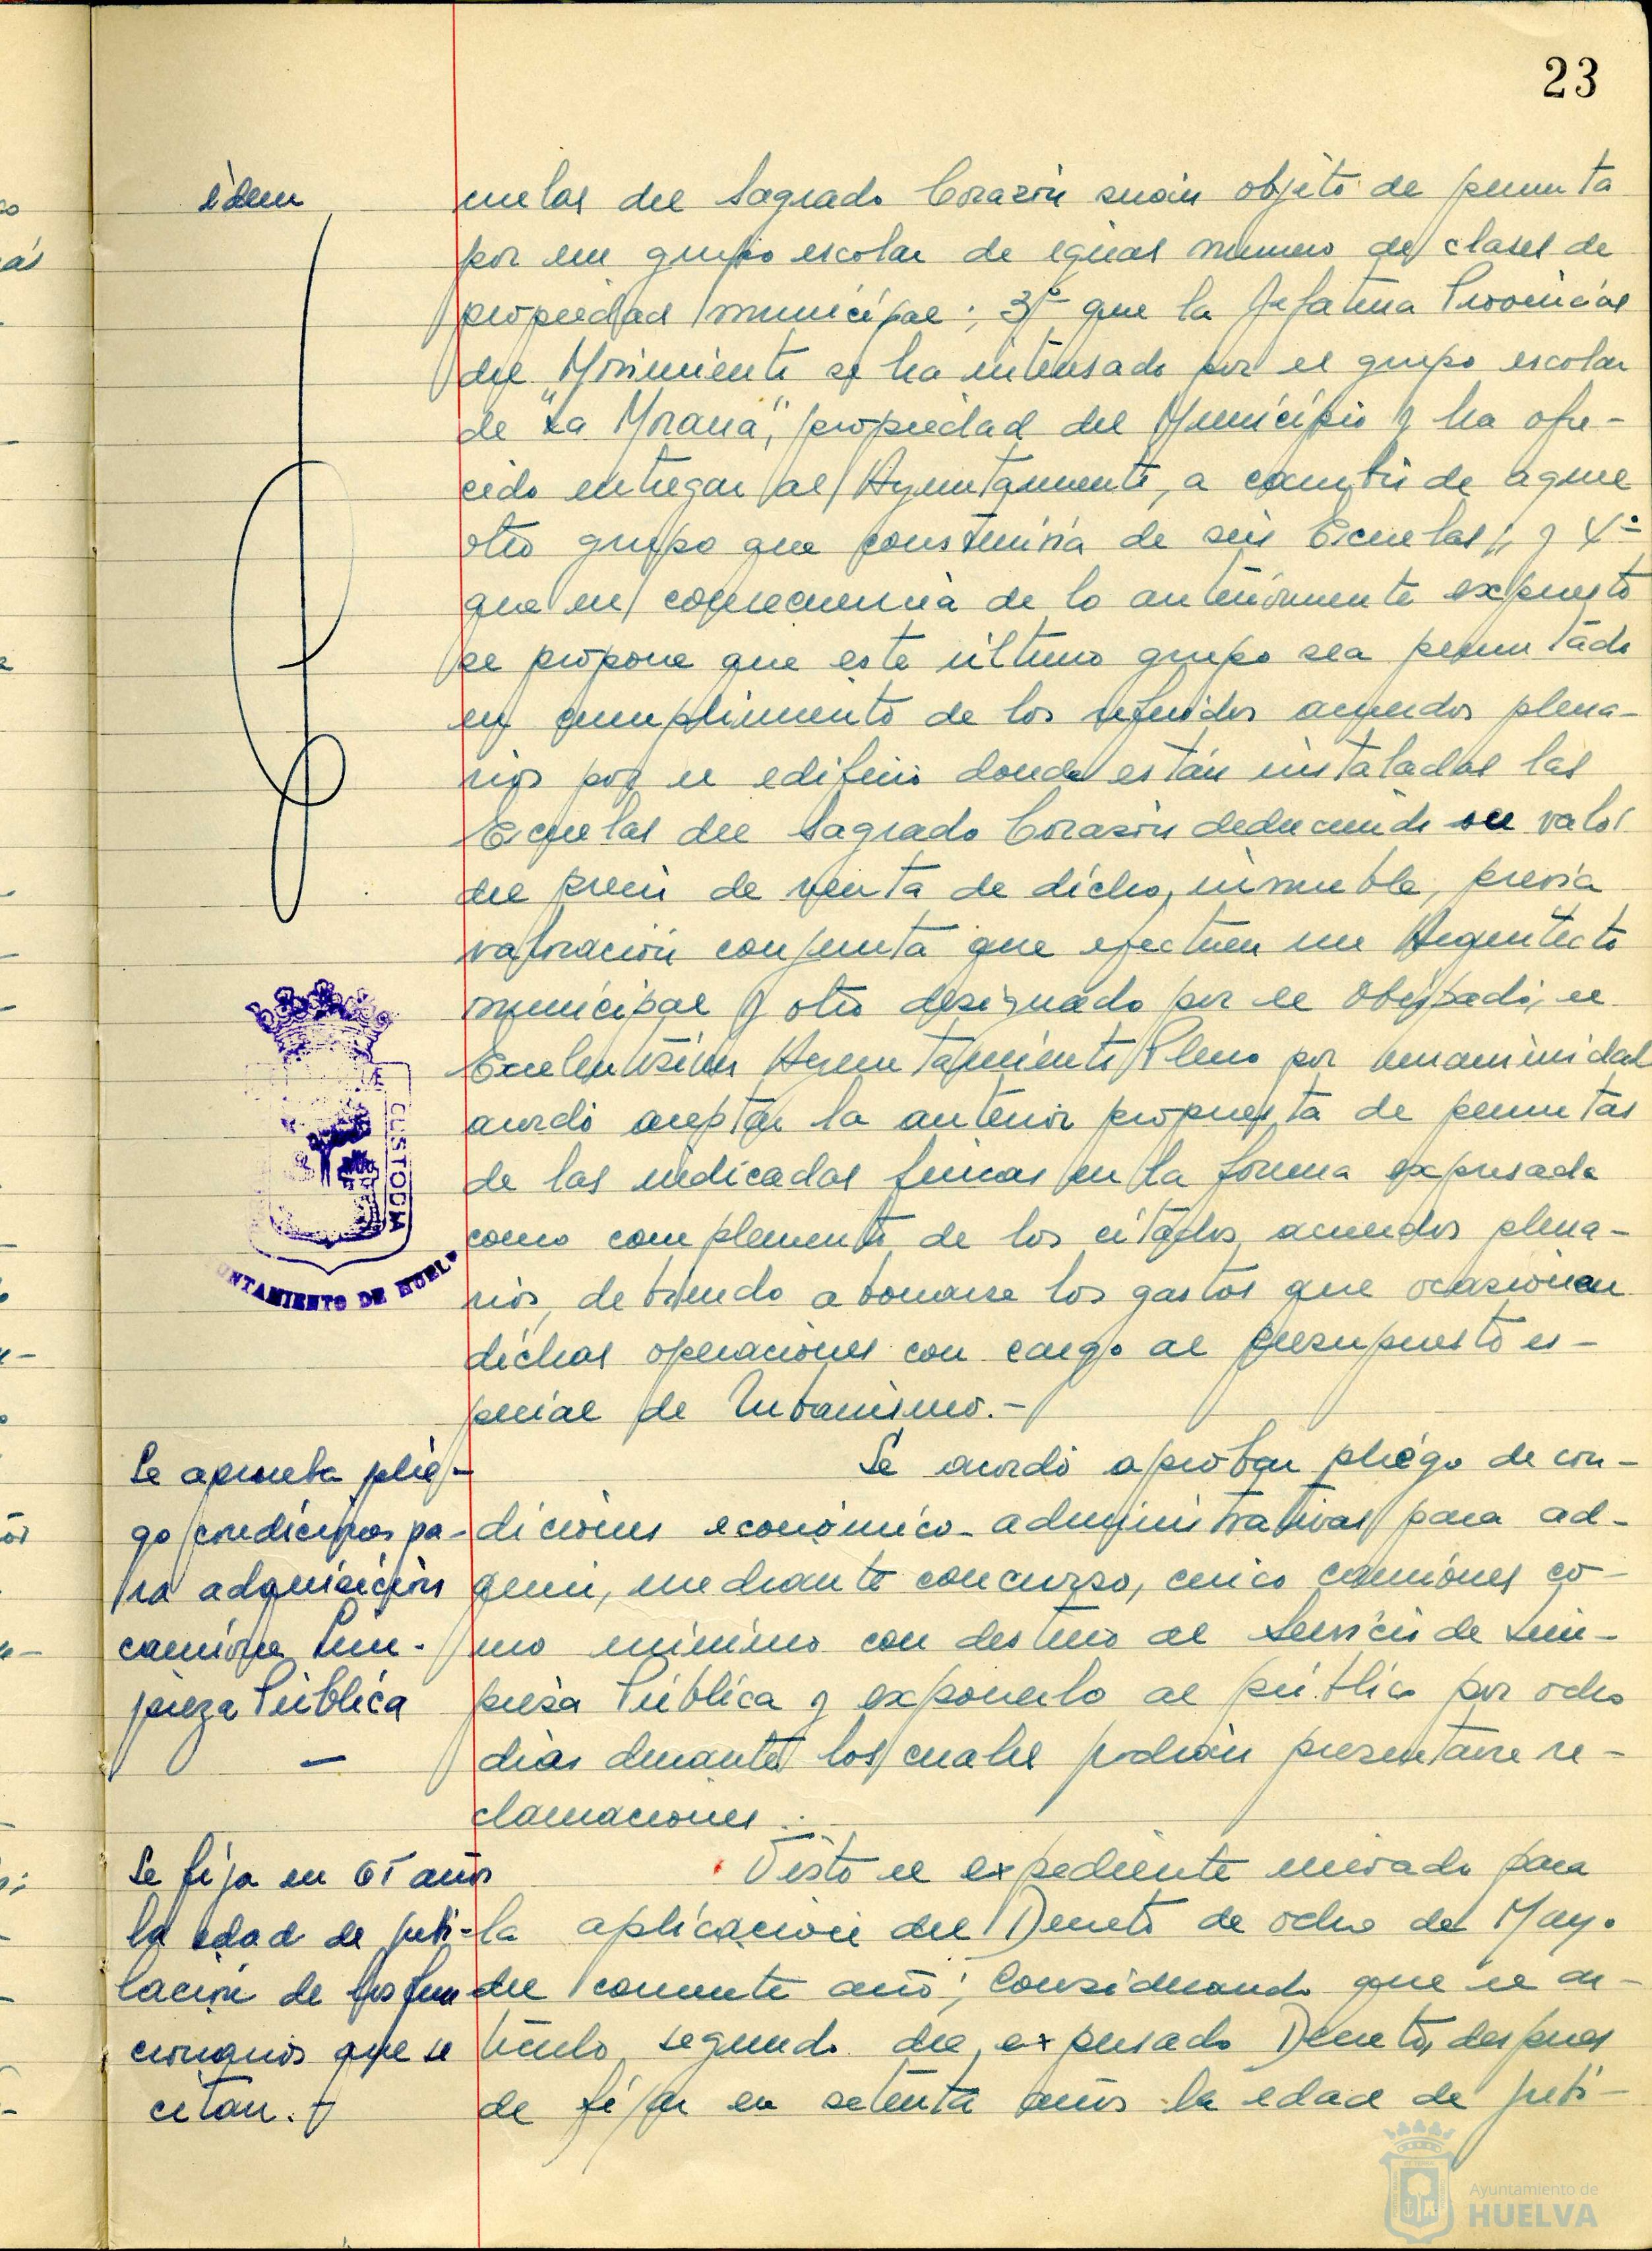 23
idem
cuelas del Sagrado Corazón serán objeto de permuta
por un grupo escolar de igual número de clases de
propiedad municipal; 3º que la Jefatura Provincial
del Movimiento se ha interesado por el grupo escolar
de "La Morana", propiedad del Municipio y ha ofre-
cido entregar al Ayuntamiento, a cambio de aquel
otro grupo que construiría de seis Escuelas; y 4º
que en consecuencia de lo anteriormente expuesto
se propone que este último grupo sea permutado
en cumplimiento de los referidos acuerdos plena-
rios por el edificio donde están instaladas las
Escuelas del Sagrado Corazón deduciendo su valor
del precio de venta de dicho inmueble, previa
valoración conjunta que efectúen un Arquitecto
municipal y otro designado por el Obispado, el
Excelentísimo Ayuntamiento Pleno por unanimidad
acordó aceptar la anterior propuesta de permutas
de las indicadas fincas en la forma expresada
como complemento de los citados acuerdos plena-
rios, debiendo abonarse los gastos que ocasionen
dichas operaciones con cargo al presupuesto es-
pecial de Urbanismo.-
CUSTODIA
UNTAMIENTO DE HUEL
Se aprueba plie-
go condiciones pa-
ra adquisición
camiones Lim-
pieza Pública
—
Se acordó aprobar pliego de con-
diciones económico-administrativas para ad-
quirir, mediante concurso, cinco camiones co-
mo mínimo con destino al Servicio de Lim-
pieza Pública y exponerlo al público por ocho
días durante los cuales podrán presentarse re-
clamaciones.
Se fija en 65 años
la edad de jubi-
lación de los fun
cionarios que se
citan.-
Visto el expediente incoado para
la aplicación del Decreto de ocho de Mayo
del corriente año; Considerando que el ar-
tículo segundo del expresado Decreto, despues
de fijar en setenta años la edad de jubi-
Ayuntamiento de
HUELVA